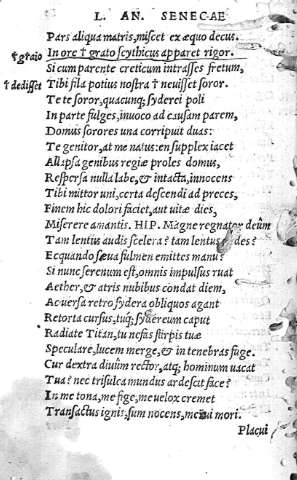 L. AN. SENECAE
Pars aliqua matris, miscet ex æquo decus.
† graio In ore † grato scythicus apparet rigor.
Si cum parente creticum intrasses fretum,
† dedisset Tibi fila potius nostra † neuisset soror.
Te te soror, quacunq; syderei poli
In parte fulges, inuoco ad causam parem,
Domus sorores una corripuit duas:
Te genitor, at me natus: en supplex iacet
Allapsa genibus regiæ proles domus,
Respersa nulla labe, & intacta, innocens
Tibi mutor uni, certa descendi ad preces,
Finem hic dolori faciet, aut uitæ dies,
Miserere amantis. HIP. Magne regnator deûm
Tam lentus audis scelera? tam lentus des?
Ecquando sæua fulmen emittes manu?
Si nunc serenum est, omnis impulsus ruat
Aether, & atris nubibus condat diem,
Ac uersa retro sydera obliquos agant
Retorta cursus, tuq; sydereum caput
Radiate Titan, tu nefas stirpis tuæ
Speculare, lucem merge, & in tenebras fuge.
Cur dextra diuûm rector, atq; hominum uacat
Tua? nec trisulca mundus ardescit face?
In me tona, me fige, me uelox cremet
Transactus ignis, sum nocens, merui mori.
Placui